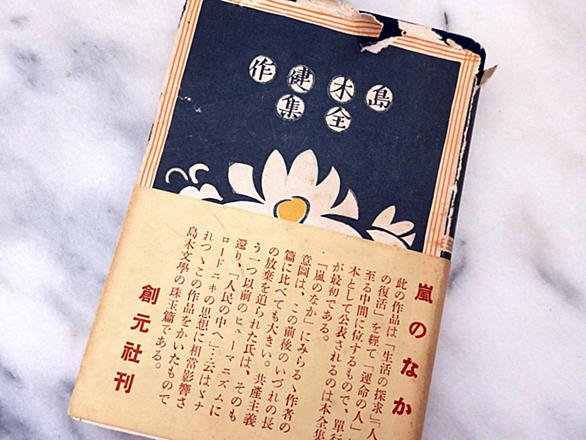 島木健作
全集
嵐のなか
此の作品は「生活の探求」「人
の復活」を経て「運命の人」
至る中間に位するもので、単行
本として公表されるのは本全集
が最初である。
「嵐のなか」にみらるゝ作者の
意図は、この前後のいづれの長
篇に比べても大きい。共産主義
の放棄を迫られた氏は、そのも
う一つ以前のヒューマニズムに
還り、「人民の中へ」…云はゞナ
ロードニキの思想に相當影響さ
れつゝこの作品をかいたもので
島木文學の珠玉篇である。
創元社刊